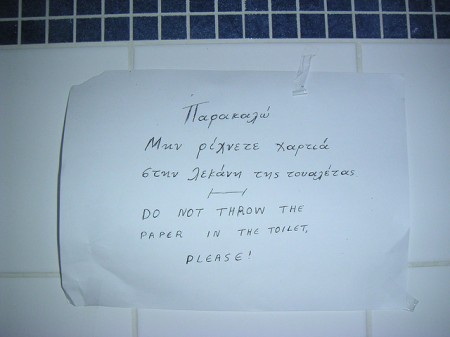 Παρακαλώ
Μην ρίχνετε χαρτιά
στην λεκάνη της τουαλέτας
DO NOT THROW THE
PAPER IN THE TOILET,
PLEASE!